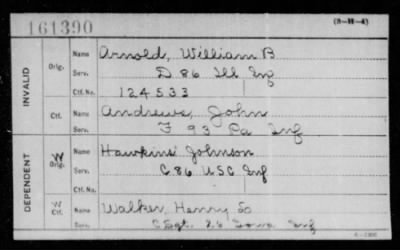 161390
(3-H-4)
INVALID
Orig.
Name Arnold, William B
Serv. D 86 Ill Inf
Ctf. No. 124533
Ctf.
Name Andrews, John
Serv. F 93 Pa Inf
DEPENDENT
W
Orig.
Name Hawkins Johnson
Serv. C 86 USC Inf
Ctf. No.
W
Ctf.
Name Walker, Henry
Serv. C Sgt. 26 Iowa Inf